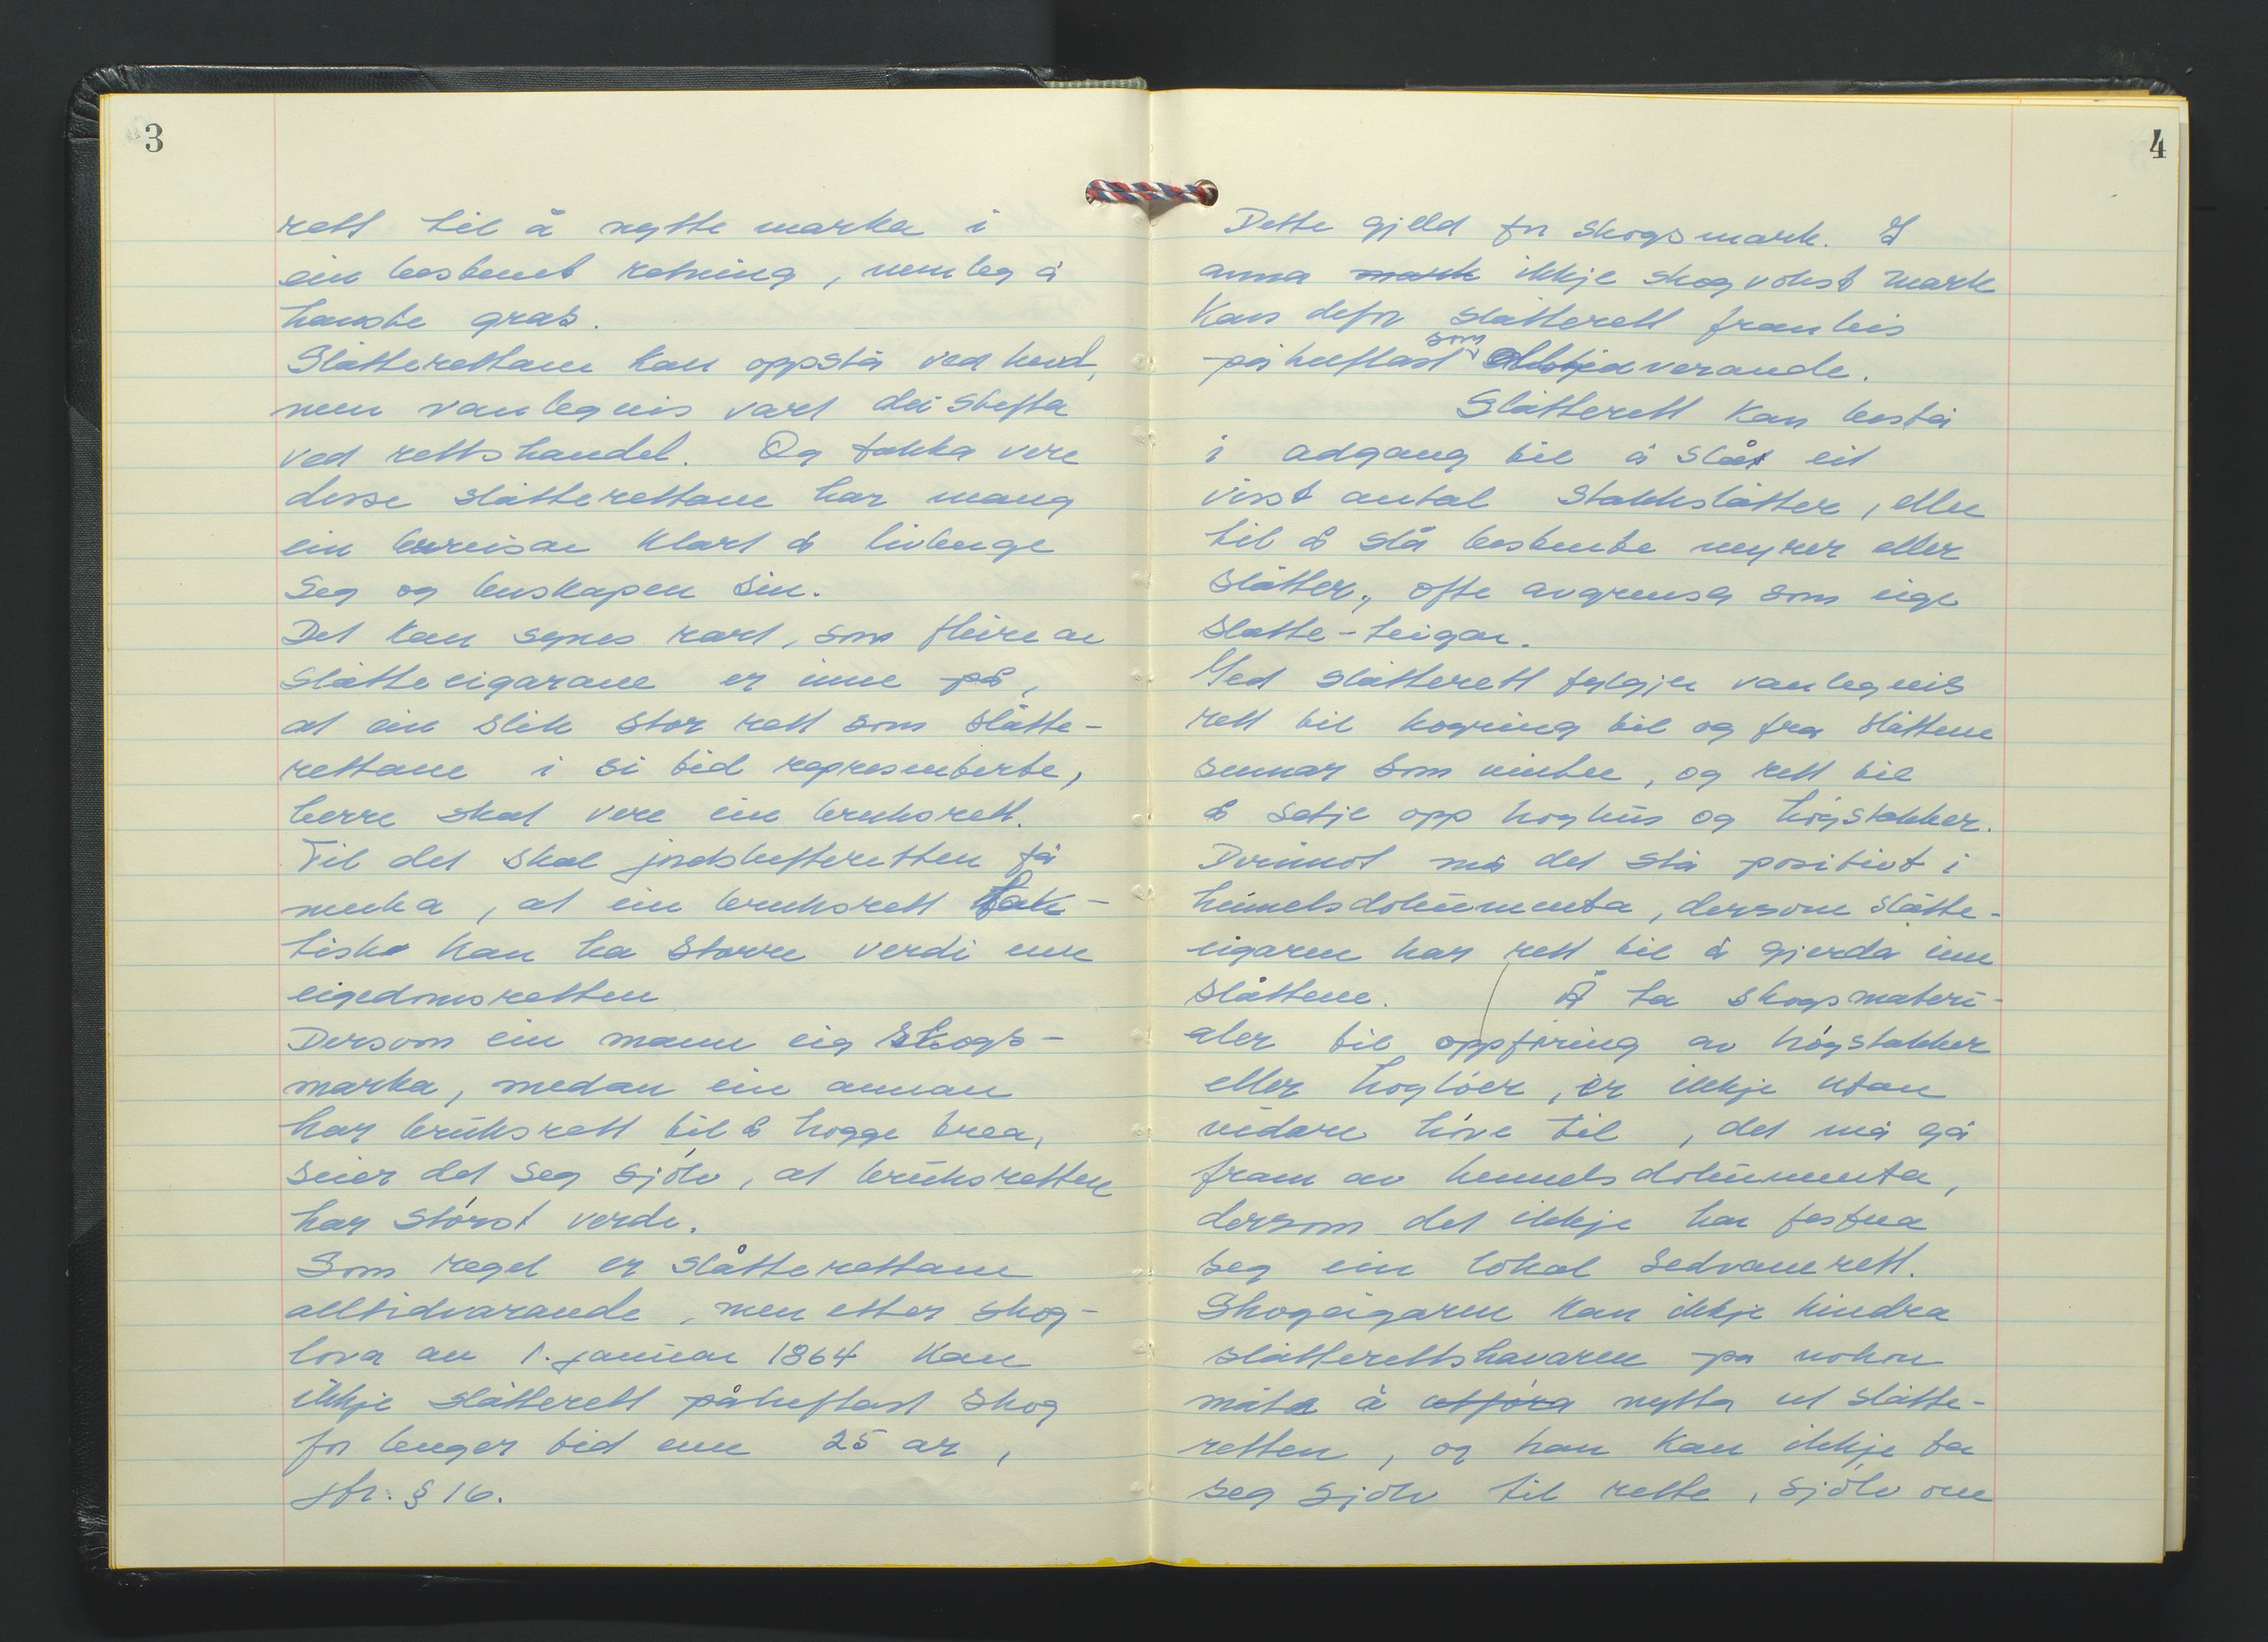 3
rett til å nytte marka i
ein bestemt retning, nemleg å
hauste gras.
Slåtterettane kan oppstå ved hevd,
men vanlegvis vart dei stifta
ved rettshandel. Og takka vere
desse slåtterettane har mang
ein bureisar klart å livberge
seg og buskapen sin.
Det kan synes rart, som fleire av
slåtteeigarane er inne på,
at ein slik stor rett som slåtte-
rettane i si tid representerte,
berre skal vere ein bruksrett.
Til det skal jordskifteretten få
merka, at ein bruksrett fak-
tisk kan ha større verdi enn
eigedomsretten
Dersom ein mann eig skogs-
marka, medan ein annan
har bruksrett til å hogge trea,
seier det seg sjølv, at bruksretten
har størst verdi.
Som regel er slåtterettane
alltidvarande, men etter skog-
lova av 1. januar 1864 kan
ikkje slåtterett påheftast skog
for lenger tid enn 25 år,
jfr. § 16.
4
Dette gjeld for skogsmark. I
anna mark ikkje skogvokst mark
kan defor slåtterett frambeis
påheftast som alltidverande.
Slåtterett kan bestå
i adgang til å slå eit
visst antal stakkslåtter, eller
til å slå bestemte myrer eller
slåtter, ofte avgrensa som eige
slåtte-teigar.
Med slåtterett fylgjer vanlegvis
rett til køyring til og fra slåttene
sommar som vinter, og rett til
å setje opp høyhus og høystakker.
Derimot må det stå positivt i
heimelsdokumenta, dersom slåtte-
eigaren har rett til å gjerda inn
slåttene. Å ta skogsmateri-
aler til oppføring av høystakker
eller høyløer, er ikkje utan
vidare høve til, det må gå
fram av heimelsdokumenta,
dersom det ikkje har festna
seg ein lokal sedvanerett.
Skogeigaren kan ikkje hindra
slåtterettshavaren på nokon
måte å utføra nytta ut slåtte-
retten, og han kan ikkje ta
seg sjølv til rette, sjølv om